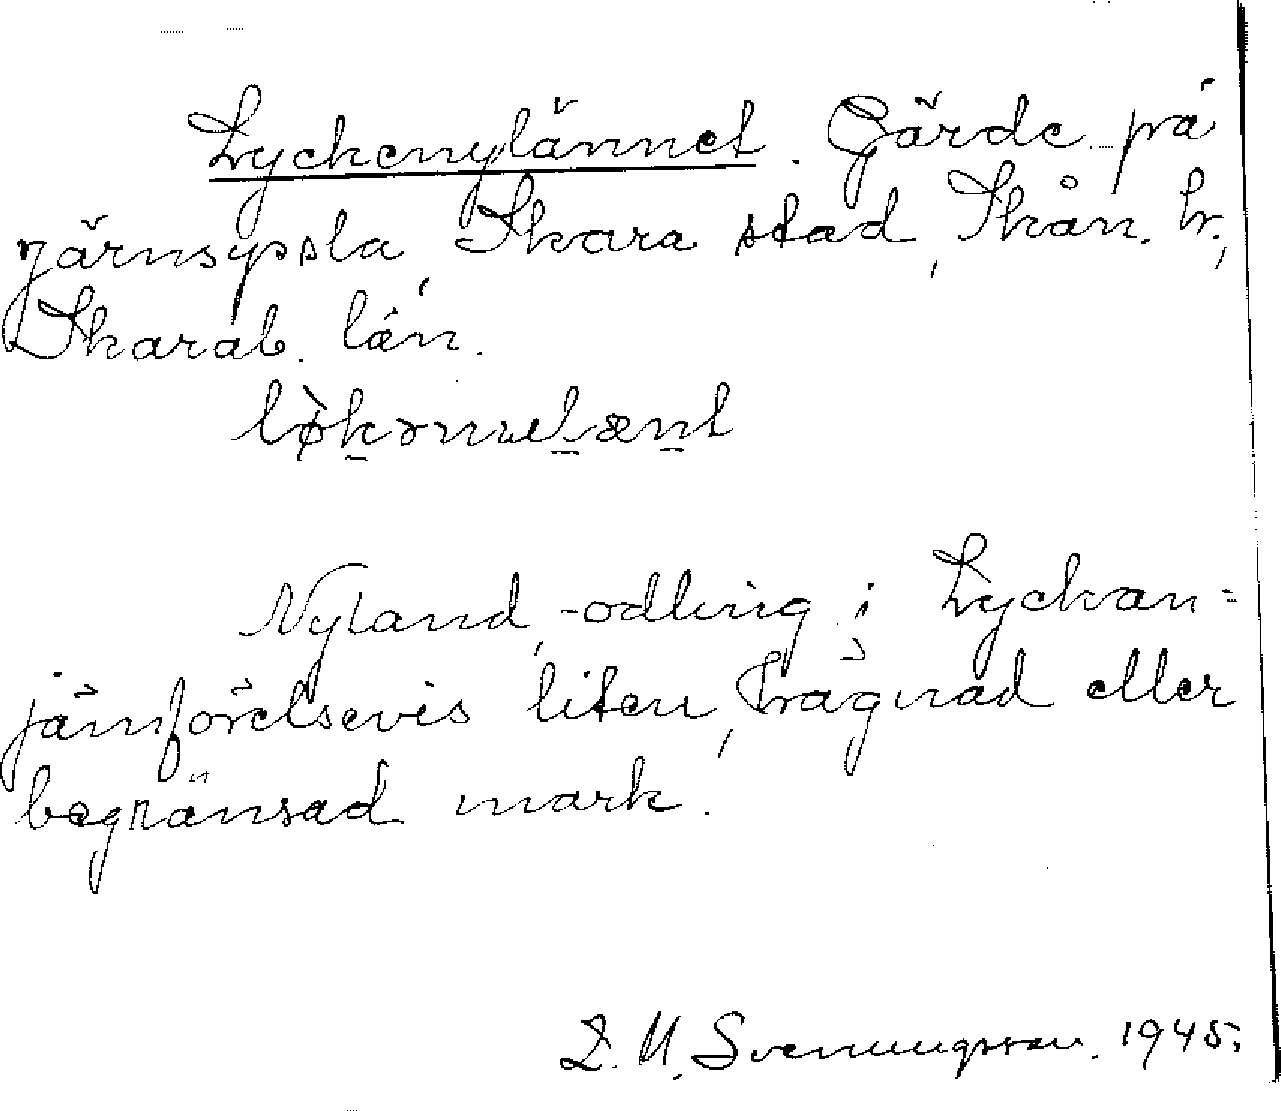 Lyckenylännet. Gärde på
järnsyssla, Skara stad, Skån. hr.,
Skarab. län.
Nyland, -odling i Lyckan =
jämförelsevis liten, hägnad eller
begränsad mark.
Svenungsson. 1945.